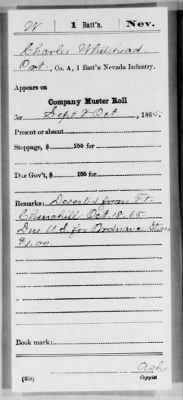 W 1 Batt'n. Nev.
Charles Whitehead
Pvt., Co. A, 1 Batt'n Nevada Infantry.
Appears on
Company Muster Roll
for Sept & Oct, 1865.
Present or absent
Stoppage, $ 100 for
Due Gov't, $ 100 for
Remarks: Deserted from Ft.
Churchill Oct. 18. 65
Due U.S. for Ordnance Stores
$1.00.
Book mark:
Ash
(358) Copyist.